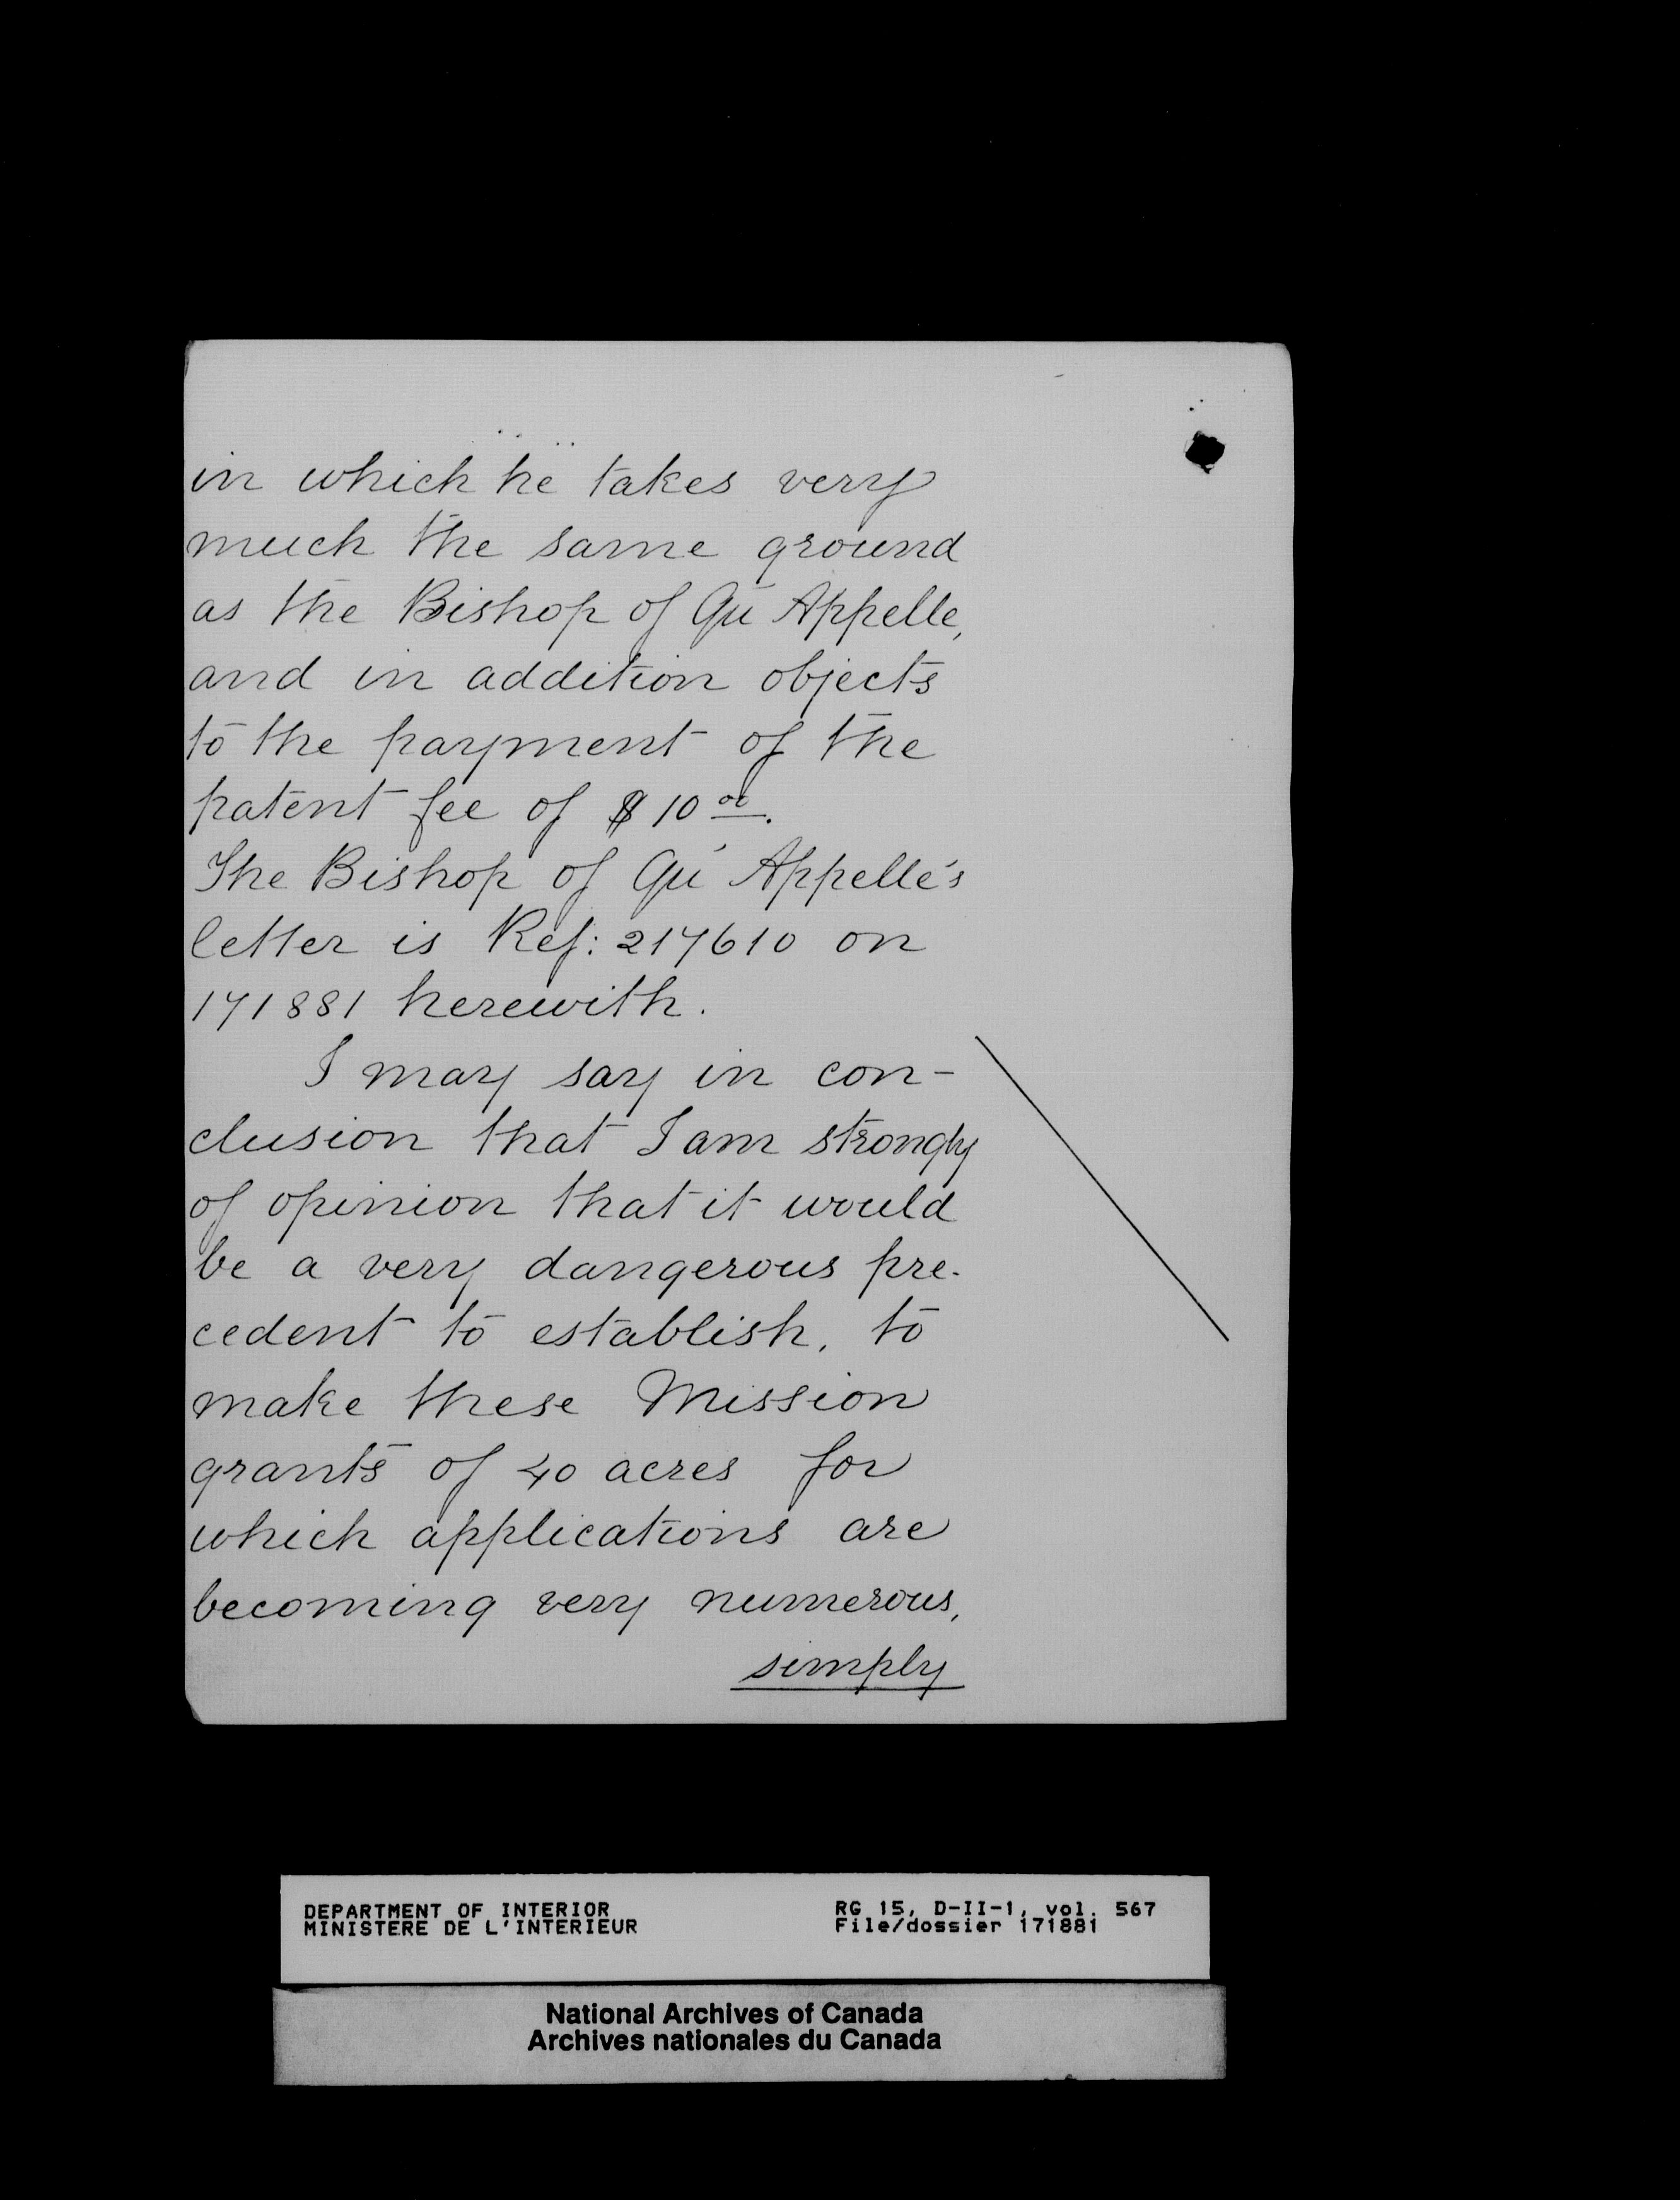 in which he takes very
much the same ground
as the Bishop of Qu'Appelle,
and in addition objects
to the payment of the
patent fee of $10 00.
The Bishop of Qu'Appelle's
letter is Ref: 217610 on
171881 herewith.
I may say in con-
clusion that I am strongly
of opinion that it would
be a very dangerous pre-
cedent to establish, to
make these Mission
grants of 40 acres for
which applications are
becoming very numerous,
simply
DEPARTMENT OF INTERIOR
MINISTERE DE L'INTERIEUR
RG 15, D-II-1, vol. 567
File/dossier 171881
National Archives of Canada
Archives nationales du Canada